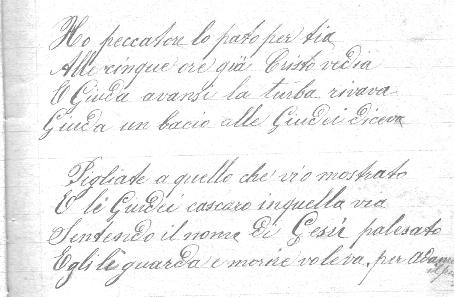 Ho peccatore lo pato per tia
Alle cinque ore già Cristo vidia
E Giuda avansi la turba rivava
Giuda un bacio alle Giudei diceva
Pigliate a quello che vi o mostrato
E li Giudei cascaro inquella via
Sentendo il nome di Gesù palesato
Egli li guarda e morire voleva per Adamo